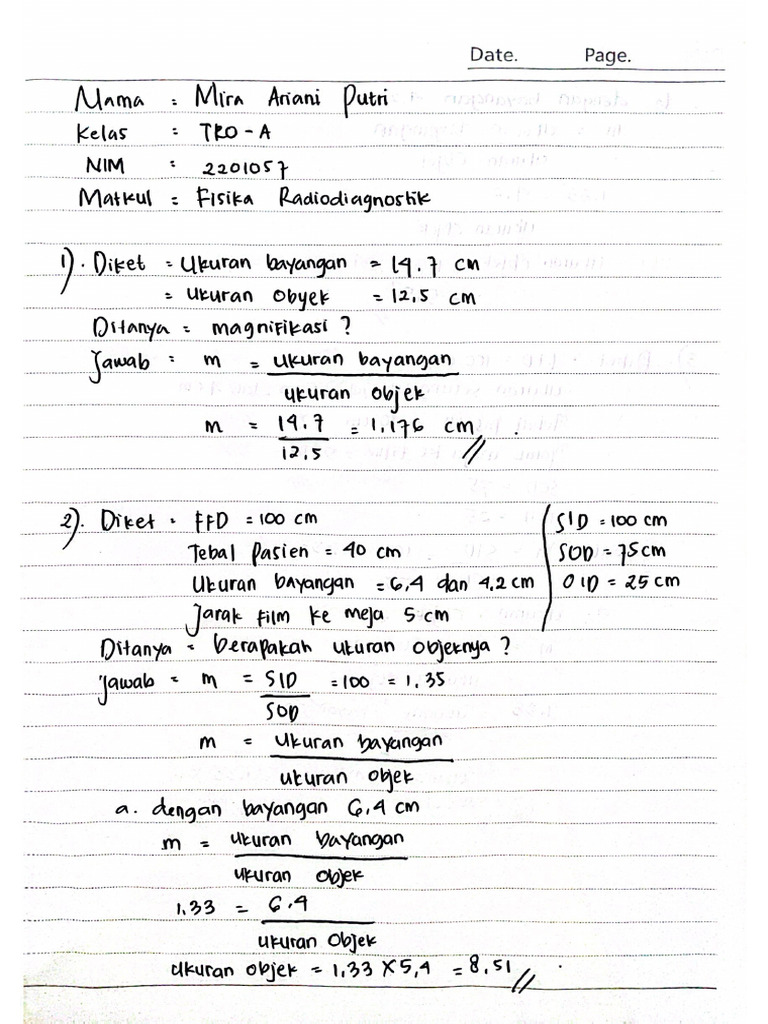 Date. Page.
Nama : Mira Ariani Putri
Kelas : TRO - A
NIM : 2201057
Matkul : Fisika Radiodiagnostik
1). Diket = Ukuran bayangan = 14.7 cm
= Ukuran Obyek = 12,5 cm
Ditanya = magnifikasi ?
Jawab = m = ukuran bayangan
ukuran objek
m = 14.7 = 1,176 cm //
12,5
2). Diket = FFD = 100 cm
Tebal Pasien = 40 cm
Ukuran bayangan = 6,4 dan 4,2 cm
Jarak film ke meja 5 cm
SID = 100 cm
SOD = 75 cm
OID = 25 cm
Ditanya = berapakah ukuran objeknya ?
Jawab = m = SID = 100 = 1,35
SOD
m = Ukuran bayangan
ukuran objek
a. dengan bayangan 6,4 cm
m = ukuran bayangan
ukuran objek
1.33 = 6.4
ukuran Objek
Ukuran objek = 1,33 X 5,4 = 8,51 //